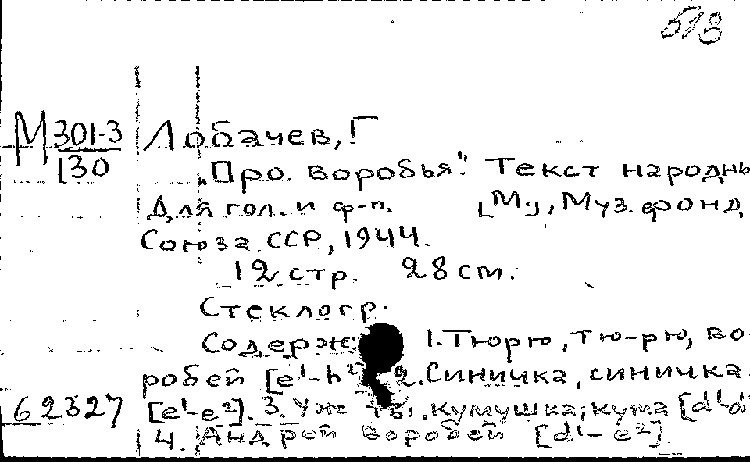 513
М 301-3 Лобачев, Г
130
„Про воробья". Текст народны
Для гол. и ф-п. [М], Муз. фонд
Союза ССР, 1944.
12 стр. 28 cm.
Стеклогр.
Содерж 1. Тюрю, тю-рю, во-
робей [e¹-h²] 2. Синичка, синичка
62327 [e¹-e²]. 3. Уже ты, кумушка, кума [d¹-d
4. Андрей воробей [d¹-e²]